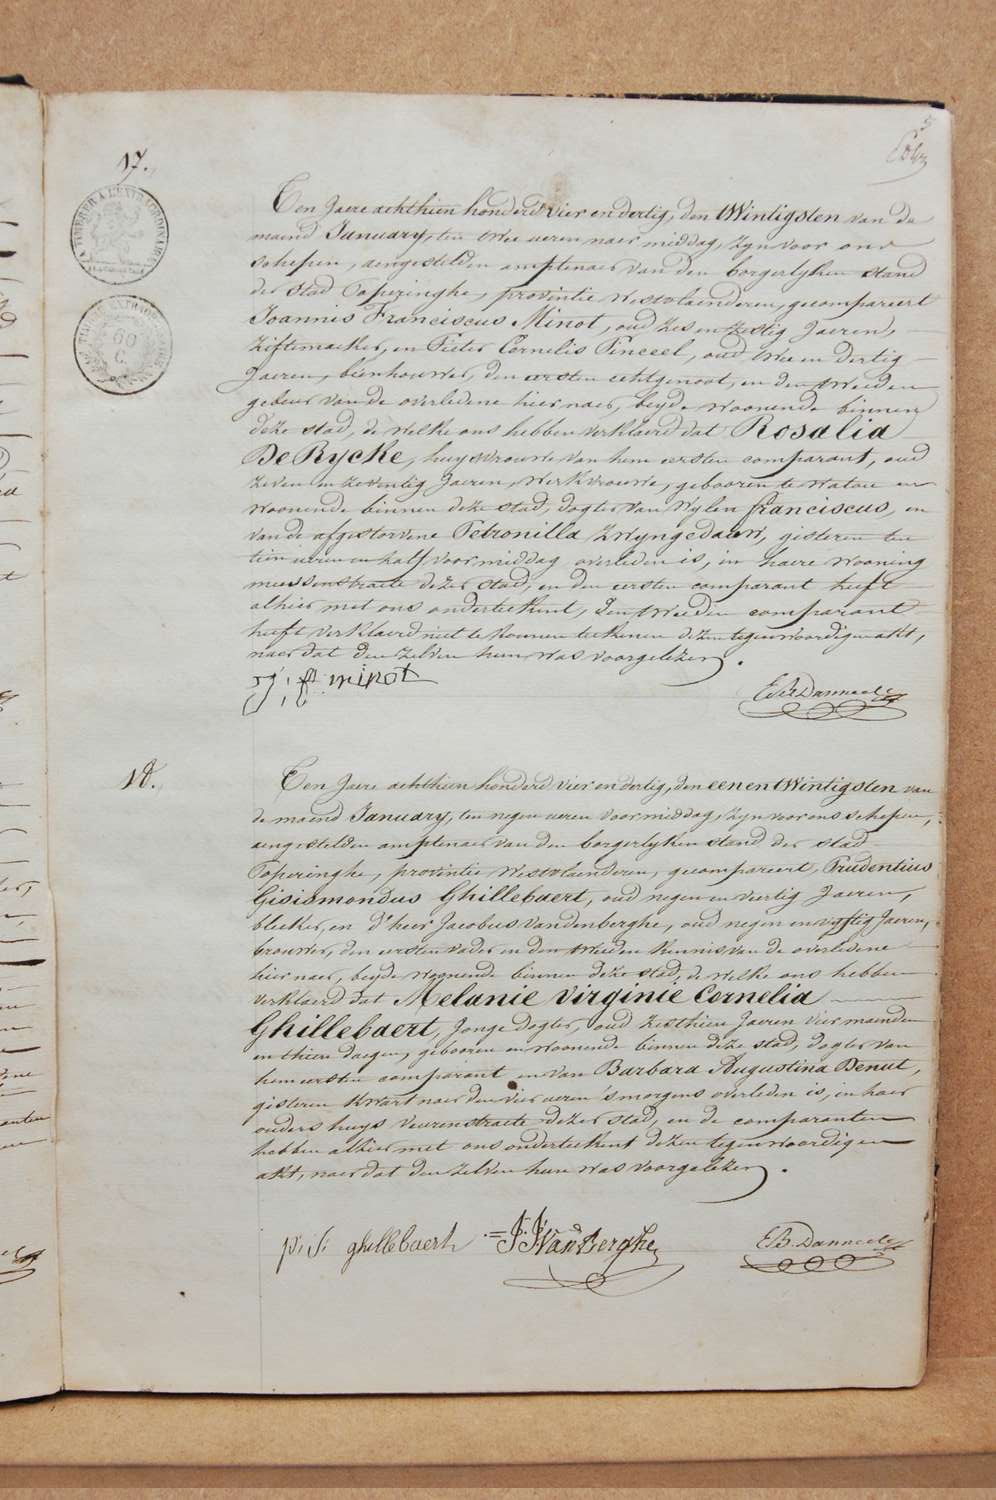 17.
TIMBRER A L'EXTRAORDINAIRE
60
C.
Ten Jaere achthien honderd vier en dertig, den tWintigsten van de
maend January, ten twee ueren naer middag, zyn voor ons
schepen, aengestelden amptenaer van den borgerlyken stand
der stad Poperinghe, provintie Westvlaenderen, gecompareert
Joannes Franciscus Minot, oud zes en zestig Jaeren,
ziftemaeker, en Pieter Cornelis Penceel, oud twee en dertig
Jaeren, bienhouwer, den eersten echtgenoot, en den tweeden
gebeur van de overledene hier naer, beyde woonende binnen
deze stad, de welke ons hebben verklaerd dat Rosalia
De Rycke, huysvrouwe van hem eersten comparant, oud
zeven en zeventig Jaeren, Werkvrouwe, gebooren te Watou en
woonende binnen deze stad, dogter van Wylen franciscus, en
van de afgestorvene Petronilla Zwyngedauw, gisteren ten
tien ueren en half voormiddag overleden is, in haere wooning
meessenstraete dezer stad, en den eersten comparant heeft
alhier met ons onderteekent, den tweeden comparant
heeft verklaerd niet te konnen teekenen dezen tegenwoordigen akt,
naer dat den zelven hun was voorgelezen.
J: f: minot
E.B. Danneele
18.
Ten Jaere achthien honderd vier en dertig, den eenentWintigsten van
de maend January, ten negen ueren voormiddag, zyn voor ons schepen,
aengestelden amptenaer van den borgerlyken stand der stad
Poperinghe, provintie Westvlaenderen, gecompareert, Prudentius
Gisismondus Ghillebaert, oud negen en viertig Jaeren,
bleeker, en d'heer Jacobus Vandenberghe, oud negen en vyftig Jaeren,
brouwer, den eersten vader en den tweeden kennis van de overledene
hier naer, beyde woonende binnen deze stad, de welke ons hebben
verklaerd dat Melanie Virginie Cornelia
Ghillebaert, Jonge dogter, oud zesthien Jaeren vier maenden
en thien daegen, gebooren en woonende binnen deze stad, dogter van
hem eersten comparant en van Barbara Augustina Denut,
gisteren kwart naer den vier ueren 's morgens overleden is, in haer
ouders huys veurenstraete dezer stad, en de comparanten
hebben alhier met ons onderteekent dezen tegenwoordigen
akt, naer dat den zelven hun was voorgelezen.
p: J: ghillebaert J. J. VandBerghe E.B. Danneele